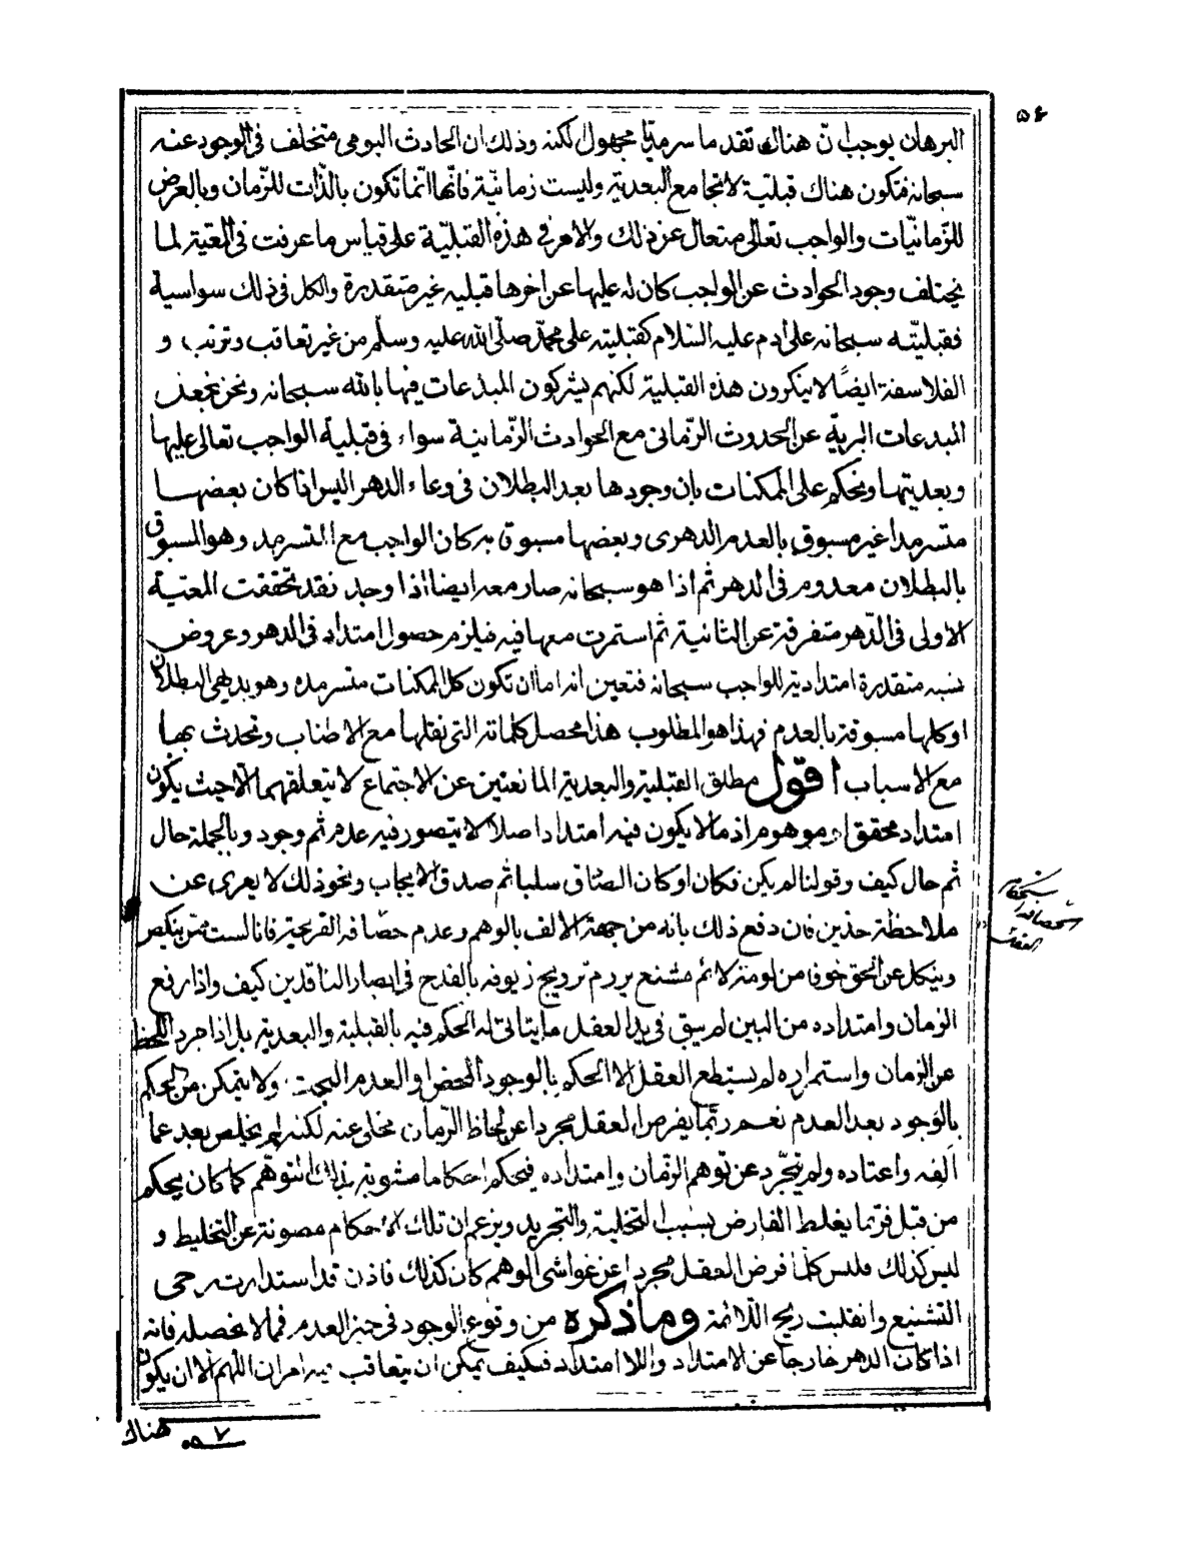 ۵۶
البرهان يوجب ان هناك تقدما سرمديا مجهول لكنه وذلك ان الحادث اليومى متخلف فى الوجود عنه
سبحانه فتكون هناك قبلية لا تجامع البعدية وليست زمانية فانها انما تكون بالذات للزمان وبالعرض
للزمانيات والواجب تعالى متعال عن ذلك والامر فى هذه القبلية على قياس ما عرفت فى المعية لما
يختلف وجود الحوادث عن الواجب كان له عليها عن اخرها قبليه غير متقدرة والكل فى ذلك سواسية
فقبليته سبحانه على ادم عليه السلام كقبليته على محمد صلى الله عليه وسلم من غير تعاقب وترتب و
الفلاسفة ايضًا لا ينكرون هذه القبلية لكنهم يشركون المبدعات فيها بالله سبحانه ونحن نجعل
المبدعات البرية عن الحدوث الزمانى مع الحوادث الزمانية سواء فى قبلية الواجب تعالى عليها
وبعديتها ونحكم على الممكنات بان وجودها بعد البطلان فى وعاء الدهر اليس اذا كان بعضها
متسرمدا غير مسبوق بالعدم الدهرى وبعضها مسبوق به كان الواجب مع المتسرمد وهو المسبوق
بالبطلان معدوم فى الدهر ثم اذا هو سبحانه صار معه ايضا اذا وجد فقد تحققت المعية
الاولى فى الدهر متفرقة عن الثانية ثم استمرت معها فيه فيلزم حصول امتداد فى الدهر وعروض
نسبه متقدرة امتدادية للواجب سبحانه فتعين انه اما ان تكون كل الممكنات متسرمده وهو بديهى البطلان
او كلها مسبوقة بالعدم فهذا هو المطلوب هذا محصل كلماته التى نقلها مع الاطناب وتحدث بها
مع الاسباب اقول مطلق القبلية والبعدية المانعتين عن الاجتماع لا يتعلقهما الا حيث يكون
امتداد محقق او موهوم اذ ما لا يكون فيه امتداد اصلا لا يتصور فيه عدم ثم وجود وبالجملة حال
ثم حال كيف وقولنا لم يكن فكان او كان الصادق سلبا ثم صدق الايجاب ونحو ذلك لا يعرى عن
ملاحظة حذين فان دفع ذلك بانه من جهة الالف بالوهم وعدم حصافه القريحة فانا لست ممن ينكص
وينكل عن الحق خوفا من لومة لائم مشنع يروم ترويج زيوفه بالقدح فى ابصار الناقدين كيف واذا رفع
الزمان وامتداده من البين لم يبق فى يد العقل ما يتاتى له الحكم فيه بالقبلية والبعدية بل اذا جرد اللحظ
عن الزمان واستمراره لم يستطع العقل الا الحكم بالوجود المحض او العدم البحت ولا يتمكن من الحكم
بالوجود بعد العدم نعم ربما يفرض العقل مجردا عن لحاظ الزمان مخلى عنه لكنه لم يخلص بعد عما
الفه واعتاده ولم يتجرد عن توهم الزمان وامتداده فيحكم احكاما مشوبة بذلك التوهم كما كان يحكم
من قبل فربما يغلط الفارض بسبب التخلية والتجريد ويزعم ان تلك الاحكام مصونة عن التخليط و
ليس كذلك فليس كلما فرض العقل مجردا عن غواشى الوهم كان كذلك فاذن قد استدارت رحى
التشنيع وانقلبت ريح اللائمة وما ذكره من وقوع الوجود فى حيز العدم فمما لا محصل له فانه
اذا كان الدهر خارجا عن الامتداد واللا امتداد فكيف يمكن ان يتعاقب فيه امران اللهم الا ان يكون
هناك
۵۷